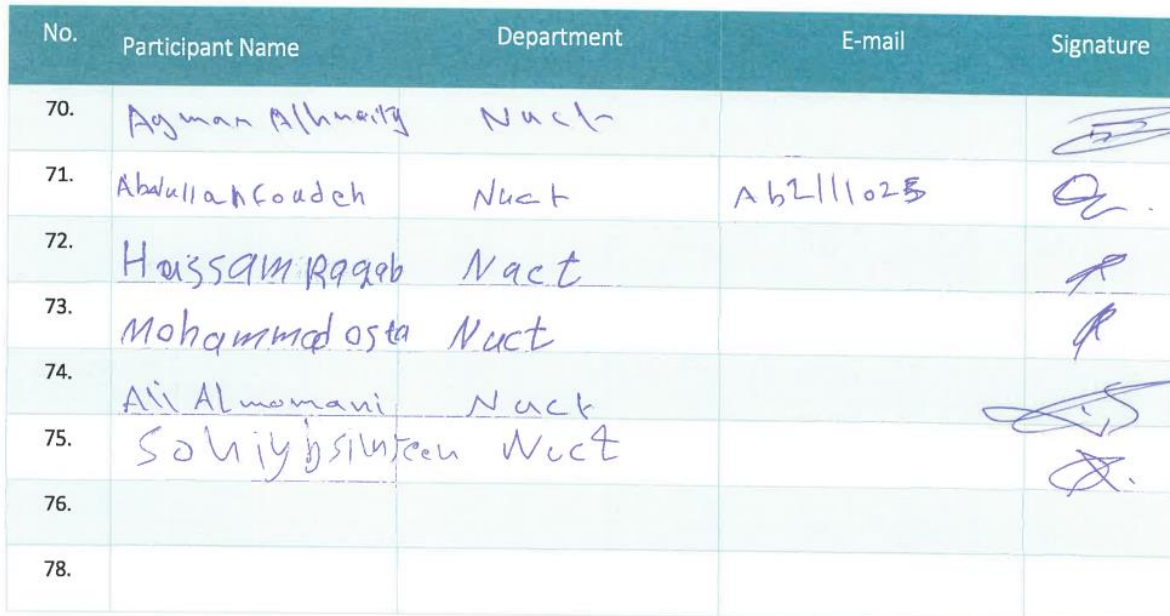 No. Participant Name Department E-mail Signature
70. Ayman Alhneity Nuct
71. Abdullah Coudeh Nuct Ab2111025
72. Haissam Ragab Nuct
73. Mohammad osta Nuct
74. Ali Almomani Nuct
75. Nuct
76.
78.